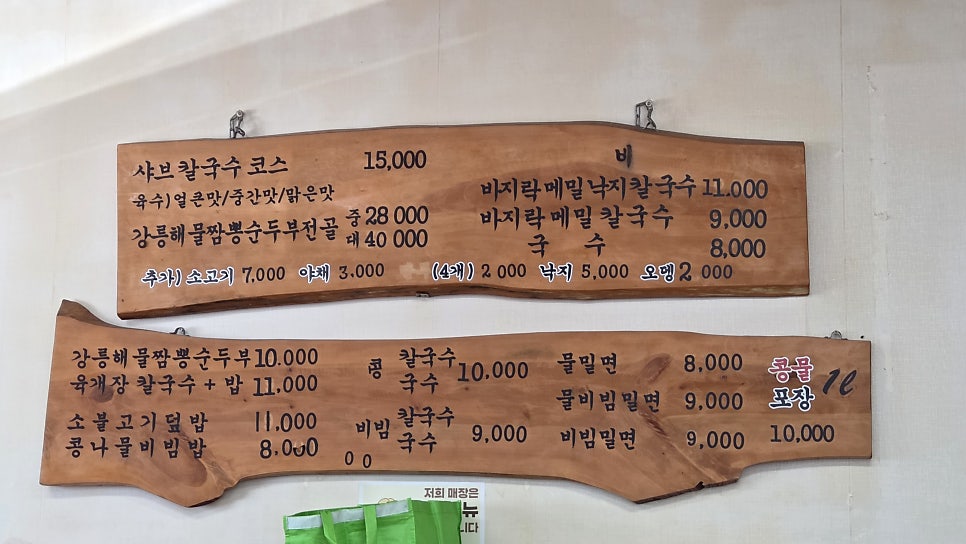 샤브칼국수 코스 15,000
육수)얼큰맛/중간맛/맑은맛
강릉해물짬뽕순두부전골 중 28 000
대 40 000
비
바지락메밀낙지칼국수 11.000
바지락메밀칼국수 9,000
국 수 8,000
추가) 소고기 7,000 야채 3.000 (4개) 2 000 낙지 5,000 오뎅 2 000
강릉해물짬뽕순두부 10.000
육개장 칼국수 + 밥 11.000
소불고기덮밥 11,000
콩나물비빔밥 8,000
콩 칼국수 국수 10,000
비빔 칼국수 국수 9,000
0 0
물밀면 8,000
물비빔밀면 9,000
비빔밀면 9,000
콩물 포장 1ℓ
10,000
저희 매장은
뉴
니다